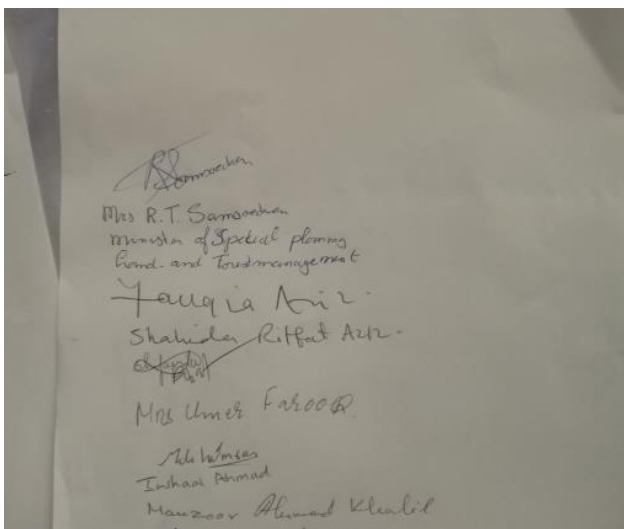 Mrs R.T. Samsoedien
Minister of Spetial planning
Land- and Forestmanagement
Fauqia Aziz.
Shahida Riffat Aziz.
Mrs Umer FarooQ
Inshaal Ahmad
Manzoor Ahmad Khalil